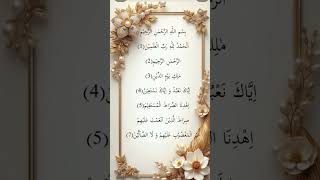 بِسْمِ اللّٰهِ الرَّحْمٰنِ الرَّحِيْمِ
اَلْحَمْدُ لِلّٰهِ رَبِّ الْعٰلَمِيْنَ(1)
الرَّحْمٰنِ الرَّحِيْمِ(2)
مٰلِكِ يَوْمِ الدِّيْنِ(3)
اِيَّاكَ نَعْبُدُ وَ اِيَّاكَ نَسْتَعِيْنُ(4)
اِهْدِنَا الصِّرَاطَ الْمُسْتَقِيْمَ(5)
صِرَاطَ الَّذِيْنَ اَنْعَمْتَ عَلَيْهِمْ
غَيْرِ الْمَغْضُوْبِ عَلَيْهِمْ وَ لَا الضَّآلِّيْنَ(7)